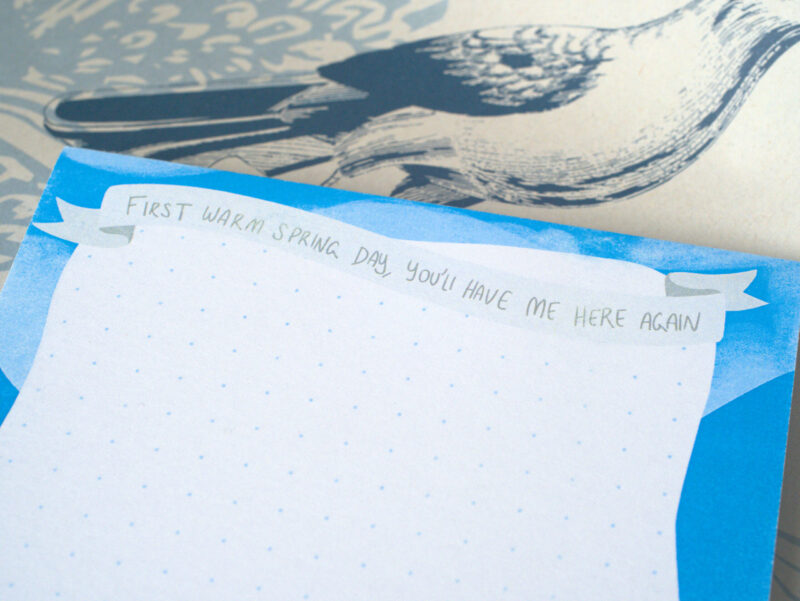 FIRST WARM SPRING DAY, YOU'LL HAVE ME HERE AGAIN